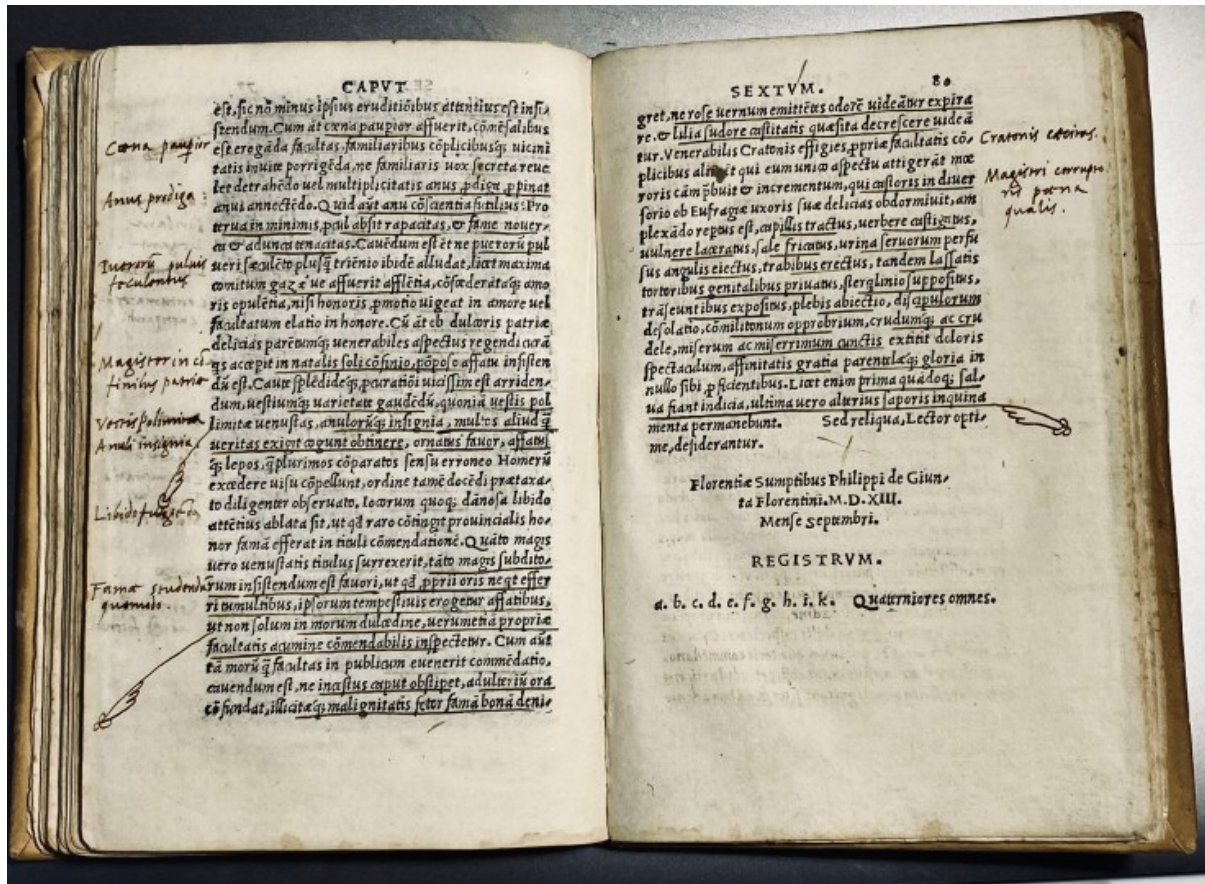 CAPVT
est, sic nõ minus ipsius eruditiõibus attentius est insi-
stendum. Cum āt cœna paupior affuerit, cõmēsalibus
est erogāda facultas, familiaribus cõplicibusq; uicini
tatis inuite porrigēda, ne familiaris uox secreta reue
let detrahēdo uel multiplicitatis anus ꝓdiga ꝓpinat
anui annectēdo. Quid aūt anu cõscientia futilius? Pro
terua in minimis, ꝓcul absit rapacitas, & fame nouer-
ca & adunca tenacitas. Cauēdum est ēt ne puerorū pul
ueri fæculēto plusq̄ triēnio ibidē alludat, licet maxima
comitum gazæ ue affuerit afflētia, cõfœderataq; amo
ris opulētia, nisi honoris ꝓmotio uigeat in amore uel
facultatum elatio in honore. Cū āt ob dulcoris patriæ
delicias parētumq; uenerabiles aspectus regendi curā
qs accepit in natalis soli cõfinio, põposo affatu insisten
dū est. Caute splēdideq; ꝓcuratiõi uicissim est arriden-
dum, uestiumq; uarietate gaudēdū, quoniā uestis pol
limitæ uenustas, anulorūq; insignia, multos aliud q̄
ueritas exigit cogunt obtinere, ornatus fauor, affatus
q; lepos, q̄plurimos cõparatos sensu erroneo Homerū
excedere uisu cõpellunt, ordine tamē docēdi prætaxa-
to diligenter obseruato. Locorum quoq; dānosa libido
attētius ablata sit, ut qđ raro cõtingit prouincialis ho-
nor famā efferat in tituli cõmendationē. Quāto magis
uero uenustatis titulus surrexerit, tāto magis subdito-
rum insistendum est fauori, ut qđ ꝓprii oris neqt effer
ri tumultibus, ipsorum tempestiuis erogetur affatibus,
ut non solum in morum dulcedine, uerumetiā propriæ
facultatis acumine cõmendabilis inspectetur. Cum aūt
tā morū q̄ facultas in publicum euenerit commēdatio,
cauendum est, ne incestus caput obstipet, adulteriū ora
cõfundat, illicitæq; malignitatis fetor famā bonā deni-
Cœna paupior
Anus prodiga
Puerorū puluis
feculentus
Magister in cõ
finibus patriæ
Vestis polimita
Anuli insignia
Libido
Fama studendū
quomodo.
SEXTVM.
80
gret, ne rose uernum emittētes odorē uideātur expira
re, & lilia sudore castitatis quæsita decrescere uideā
tur. Venerabilis Cratonis effigies, ꝓpriæ facultatis cõ-
plicibus aliquāt qui eum unico aspectu attigerāt mœ
roris cām ꝓbuit & incrementum, qui castoris in diuer
sorio ob Eufragiæ uxoris suæ delicias obdormiuit, am
plexādo reptus est, capillis tractus, uerbere castigatus,
uulnere laceratus, sale fricatus, urina seruorum perfu
sus angulis eiectus, trabibus erectus, tandem lassatis
tortoribus genitalibus priuatus, sterqlinio suppositus,
trāseuntibus expositus, plebis abiectio, discipulorum
desolatio, cõmilitonum opprobrium, crudumq; ac cru
dele, miserum ac miserrimum cunctis extitit doloris
spectaculum, affinitatis gratia parentelæq; gloria in
nullo sibi ꝓficientibus. Licet enim prima quādoq; sal-
ua fiant indicia, ultima uero alterius saporis inquina
menta permanebunt. Sed reliqua, Lector opti-
me, desiderantur.
Florentiæ Sumptibus Philippi de Giun-
ta Florentini. M. D. XIII.
Mense Septembri.
REGISTRVM.
a. b. c. d. e. f. g. h. i. k. Quaterniores omnes.
Cratonis
Magistri corrupto
ris pœna
qualis.